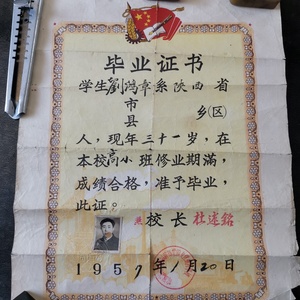 毕业证书
学生劉鸿章系陕西省
市
县 乡(区)
人，现年三十一岁，在
本校高小班修业期满，
成绩合格，准予毕业，
此证。
校长杜述銘
1957年1月20日